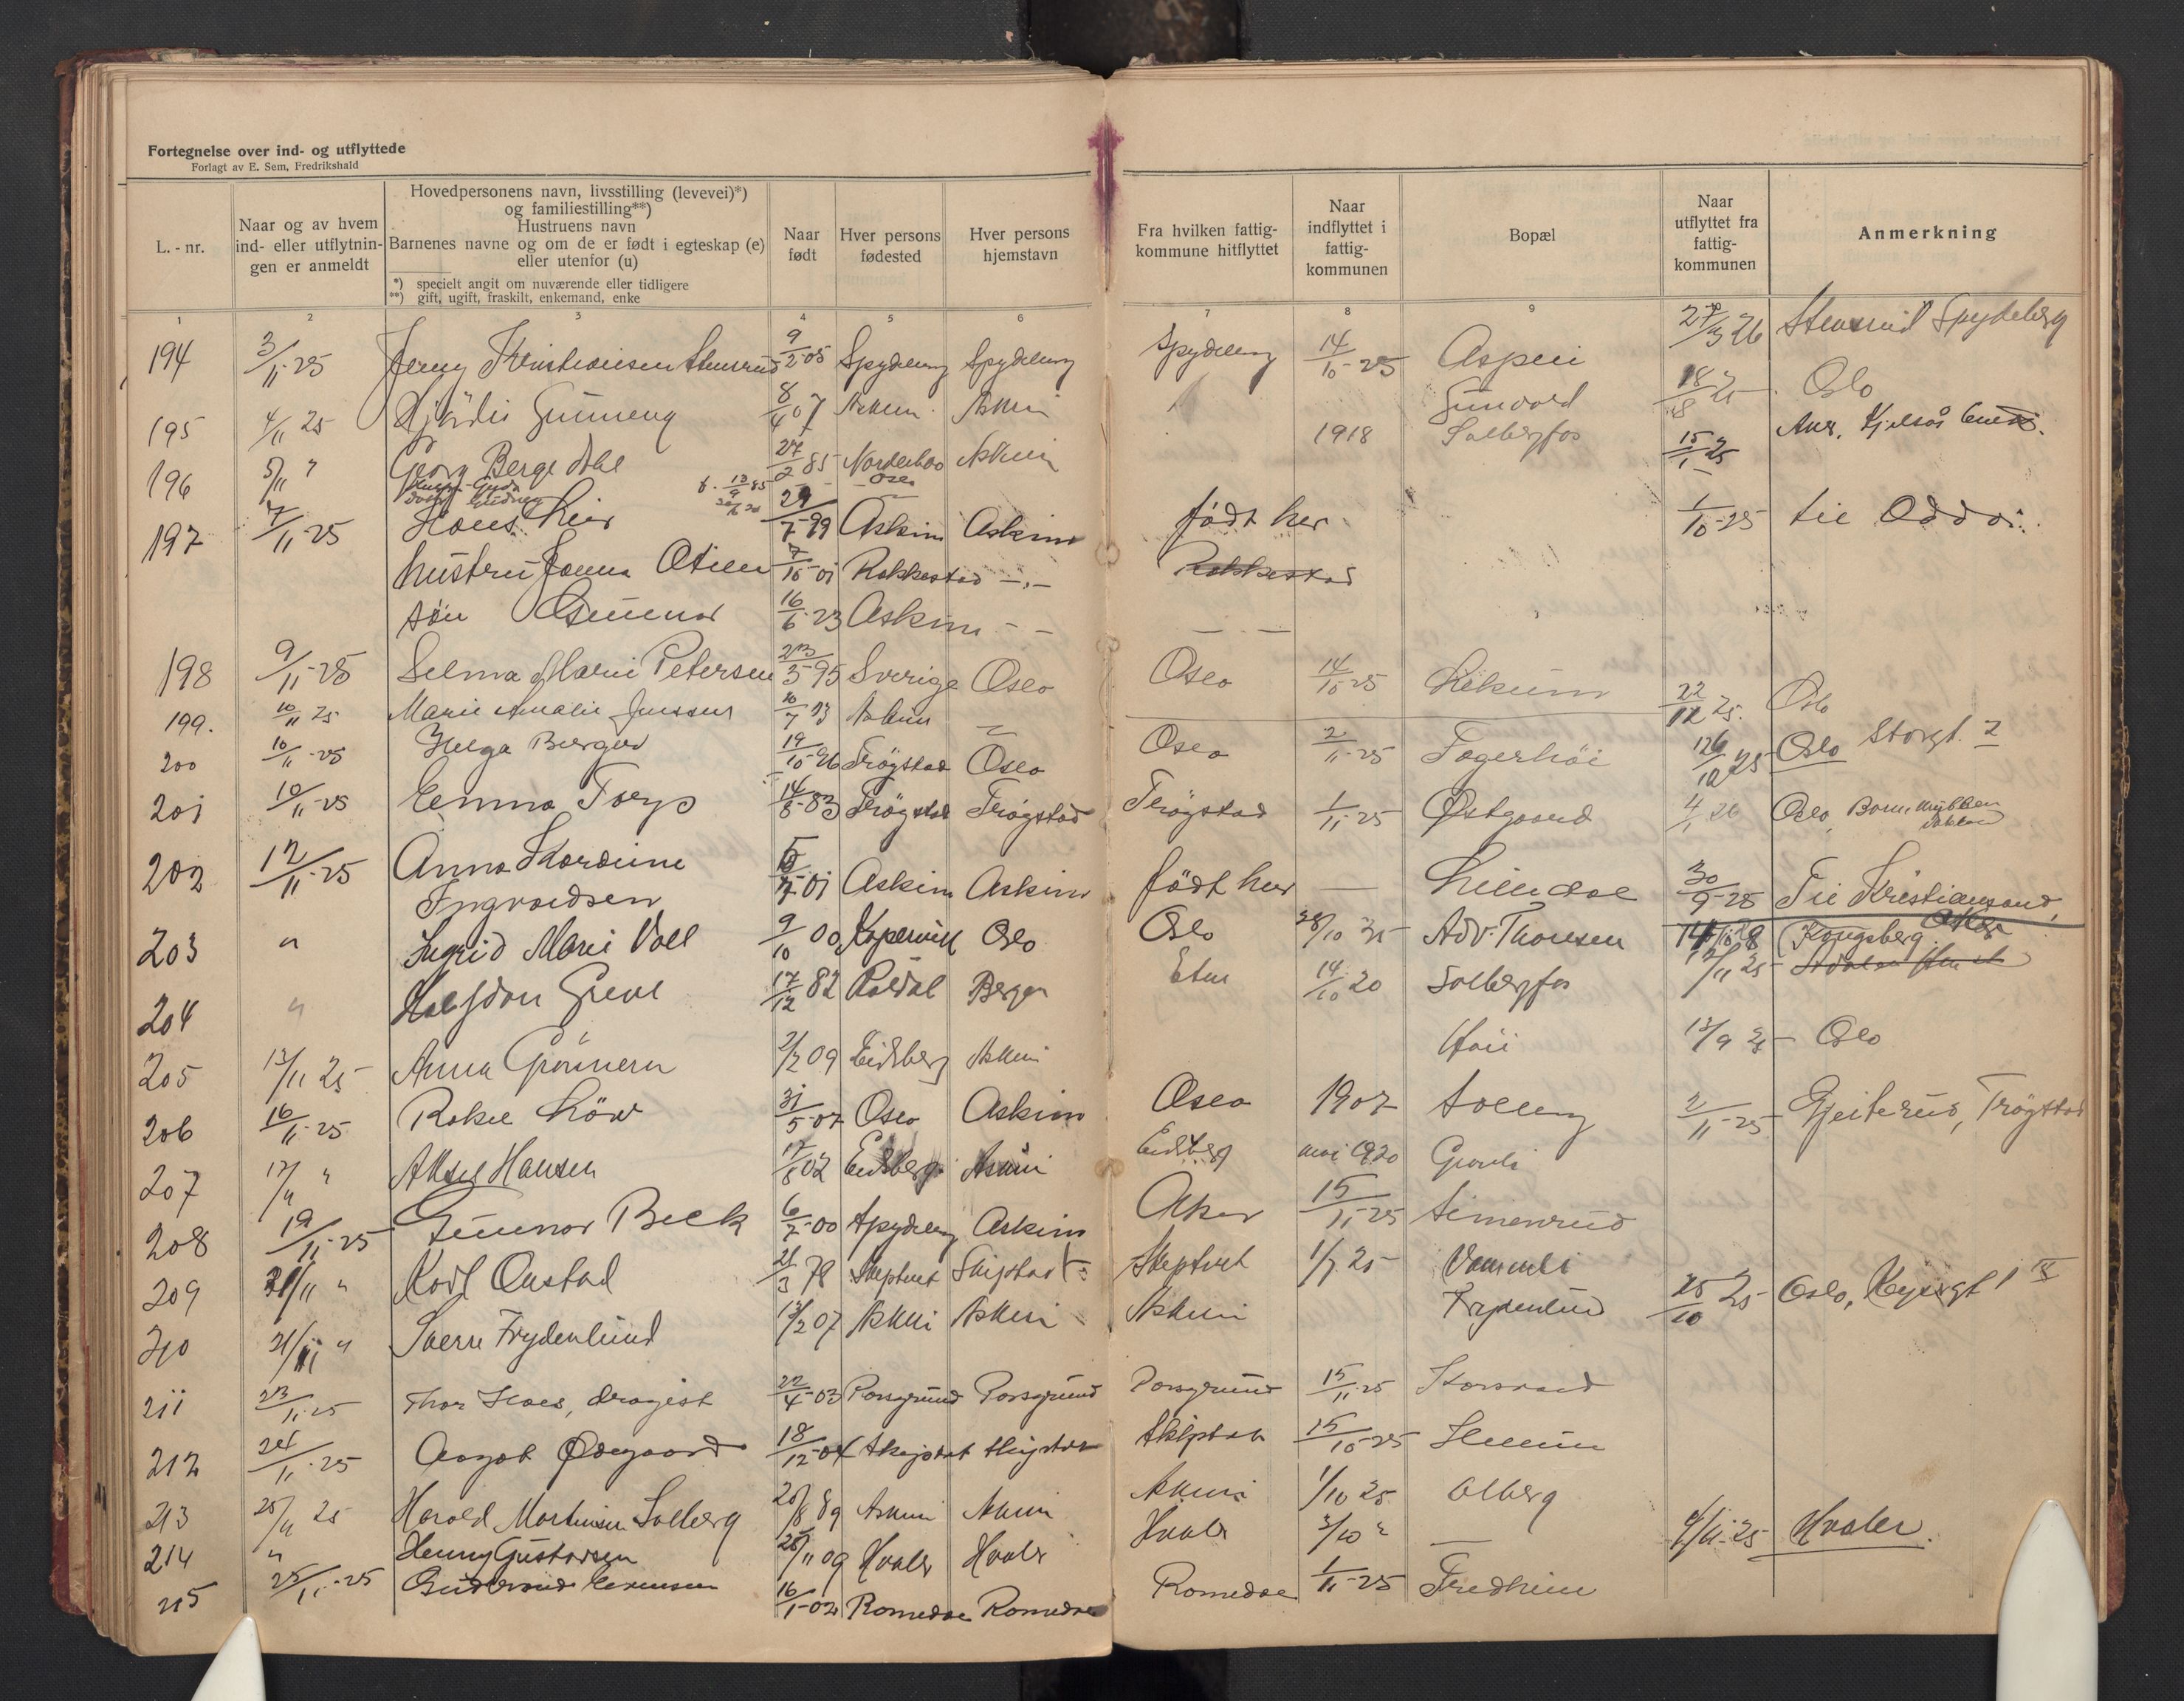 Fortegnelse over ind- og utflyttede
Forlagt av E. Sem, Fredrikshald
L. - nr.
Naar og av hvem
ind- eller utflytnin-
gen er anmeldt
Hovedpersonens navn, livsstilling (levevei)*)
og familiestilling**)
Hustruens navn
Barnenes navne og om de er født i egteskap (e)
eller utenfor (u)
*) specielt angit om nuværende eller tidligere
**) gift, ugift, fraskilt, enkemand, enke
Naar
født
Hver persons
fødested
Hver persons
hjemstavn
Fra hvilken fattig-
kommune hitflyttet
Naar
indflyttet i
fattig-
kommunen
Bopæl
Naar
utflyttet fra
fattig-
kommunen
Anmerkning
1 2 3 4 5 6 7 8 9
194 3/11-25 Jenny Kristiansen Stensrud 9/2 05 Spydeberg Spydeberg Spydeberg 14/10-25 Aspen 27/3 26 Stensrud Spydeberg
195 4/11 25 Hjördis Gunneng 8/4 07 Askim Askim 18/8 25 Oslo
196 5/11 " Georg Berge Dahl 27/2 85 Norderhov Askim 1918 Solbergfos 15/1 25
197 7/11-25 Hans Lier 29/7-99 Askim Askim født her 1/10-25 til
hustru Otilie 7/10-01 Rakkestad -"- Rakkestad
søn Gunnar 16/6-23 Askim - - - -
198 9/11-25 Selma Marie Petersen 23/5-95 Sverige Oslo Oslo 14/10-25 Likum 22/12 25. Oslo
199. 10/11 25 Marie Amalie Jensen 10/7 13 Askim
200 10/11-25 Helga Berger 19/10-26 Trøgstad Oslo Oslo 2/11-25 Fagerhöi Oslo Storgt. 2
201 10/11-25 Emma Torp 14/8-83 Trøgstad Trøgstad Trøgstad 1/11-25 Østgaard 4/1 26 Oslo
202 12/11-25 Anna Thordine Askim Askim født her — 30/9-25 Til Kristiansand,
Ingvaldsen
203 " Ingrid Marie Voll 9/10 00 Kopervik Oslo Oslo 28/10 Adv. Thonsen Kongsberg
204 " Halfdan Greve 17/12 82 Røldal Bergen Etne 14/10 20 Solbergfos 12/11 25
205 13/11 25 Anna Grönnern 2/2 09 Eidsberg Askim Höii 12/9 25 Oslo
206 16/11-25 Rakel Löw 31/5-07 Oslo Askim Oslo 1907 Solleng 2/11-25 Gjeiterud, Trøgstad
207 17/11 " Aksel Hansen 17/8 02 Eidsberg Askim Eidsberg mai 1920
208 19/11-25 Gunnar Beck 6/2-00 Spydeberg Askim Aker 15/11-25 Simenrud
209 21/11 " Karl Onstad 21/3 78 Skiptvet Skiptvet Skiptvet 1/7 25 Vammeli
210 21/11 " Sverre Frydenlund 13/2 07 Askim Askim Askim Frydenlund 25/10 25 Oslo,
211 23/11-25 Thor Hoes, drogist 22/4-03 Porsgrund Porsgrund Porsgrund 15/11-25
212 24/11-25 Aagot Ødegaard 18/12-04 Skiptvet Skiptvet Skiptvet 15/10-25
213 25/11 25 Harald Martinsen Solberg 20/8 89 Askim Askim Askim 1/10 25 Olberg
214 " Henny Gustavsen 28/11 09 Hvaler Hvaler Hvaler 2/10 " — 4/11-25 Hvaler.
215 25/11-25 Gudbrand Evensen 16/1-02 Romedal Romedal Romedal 1/11-25 Fredheim